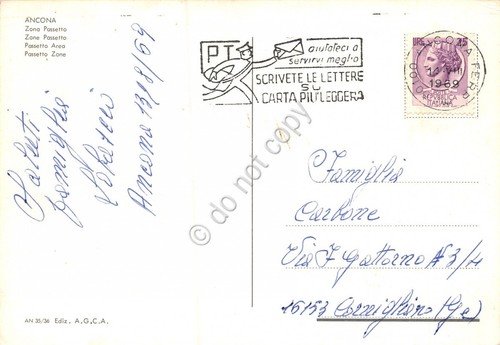 ANCONA
Zona Passetto
Zone Passetto
Passetto Area
Passetto Zone
Saluti
Famiglia
Ancona 13/8/69
AN 35/36 Ediz. A.G.C.A.
PT
aiutateci a
servirvi meglio
SCRIVETE LE LETTERE
SU
CARTA PIU' LEGGERA
LIRE 15
ANCONA FERR.
VIII
1969
do not copy
Famiglia
Carbone
Via F Gattorno N 3/4
16153 Cornigliano (Ge)